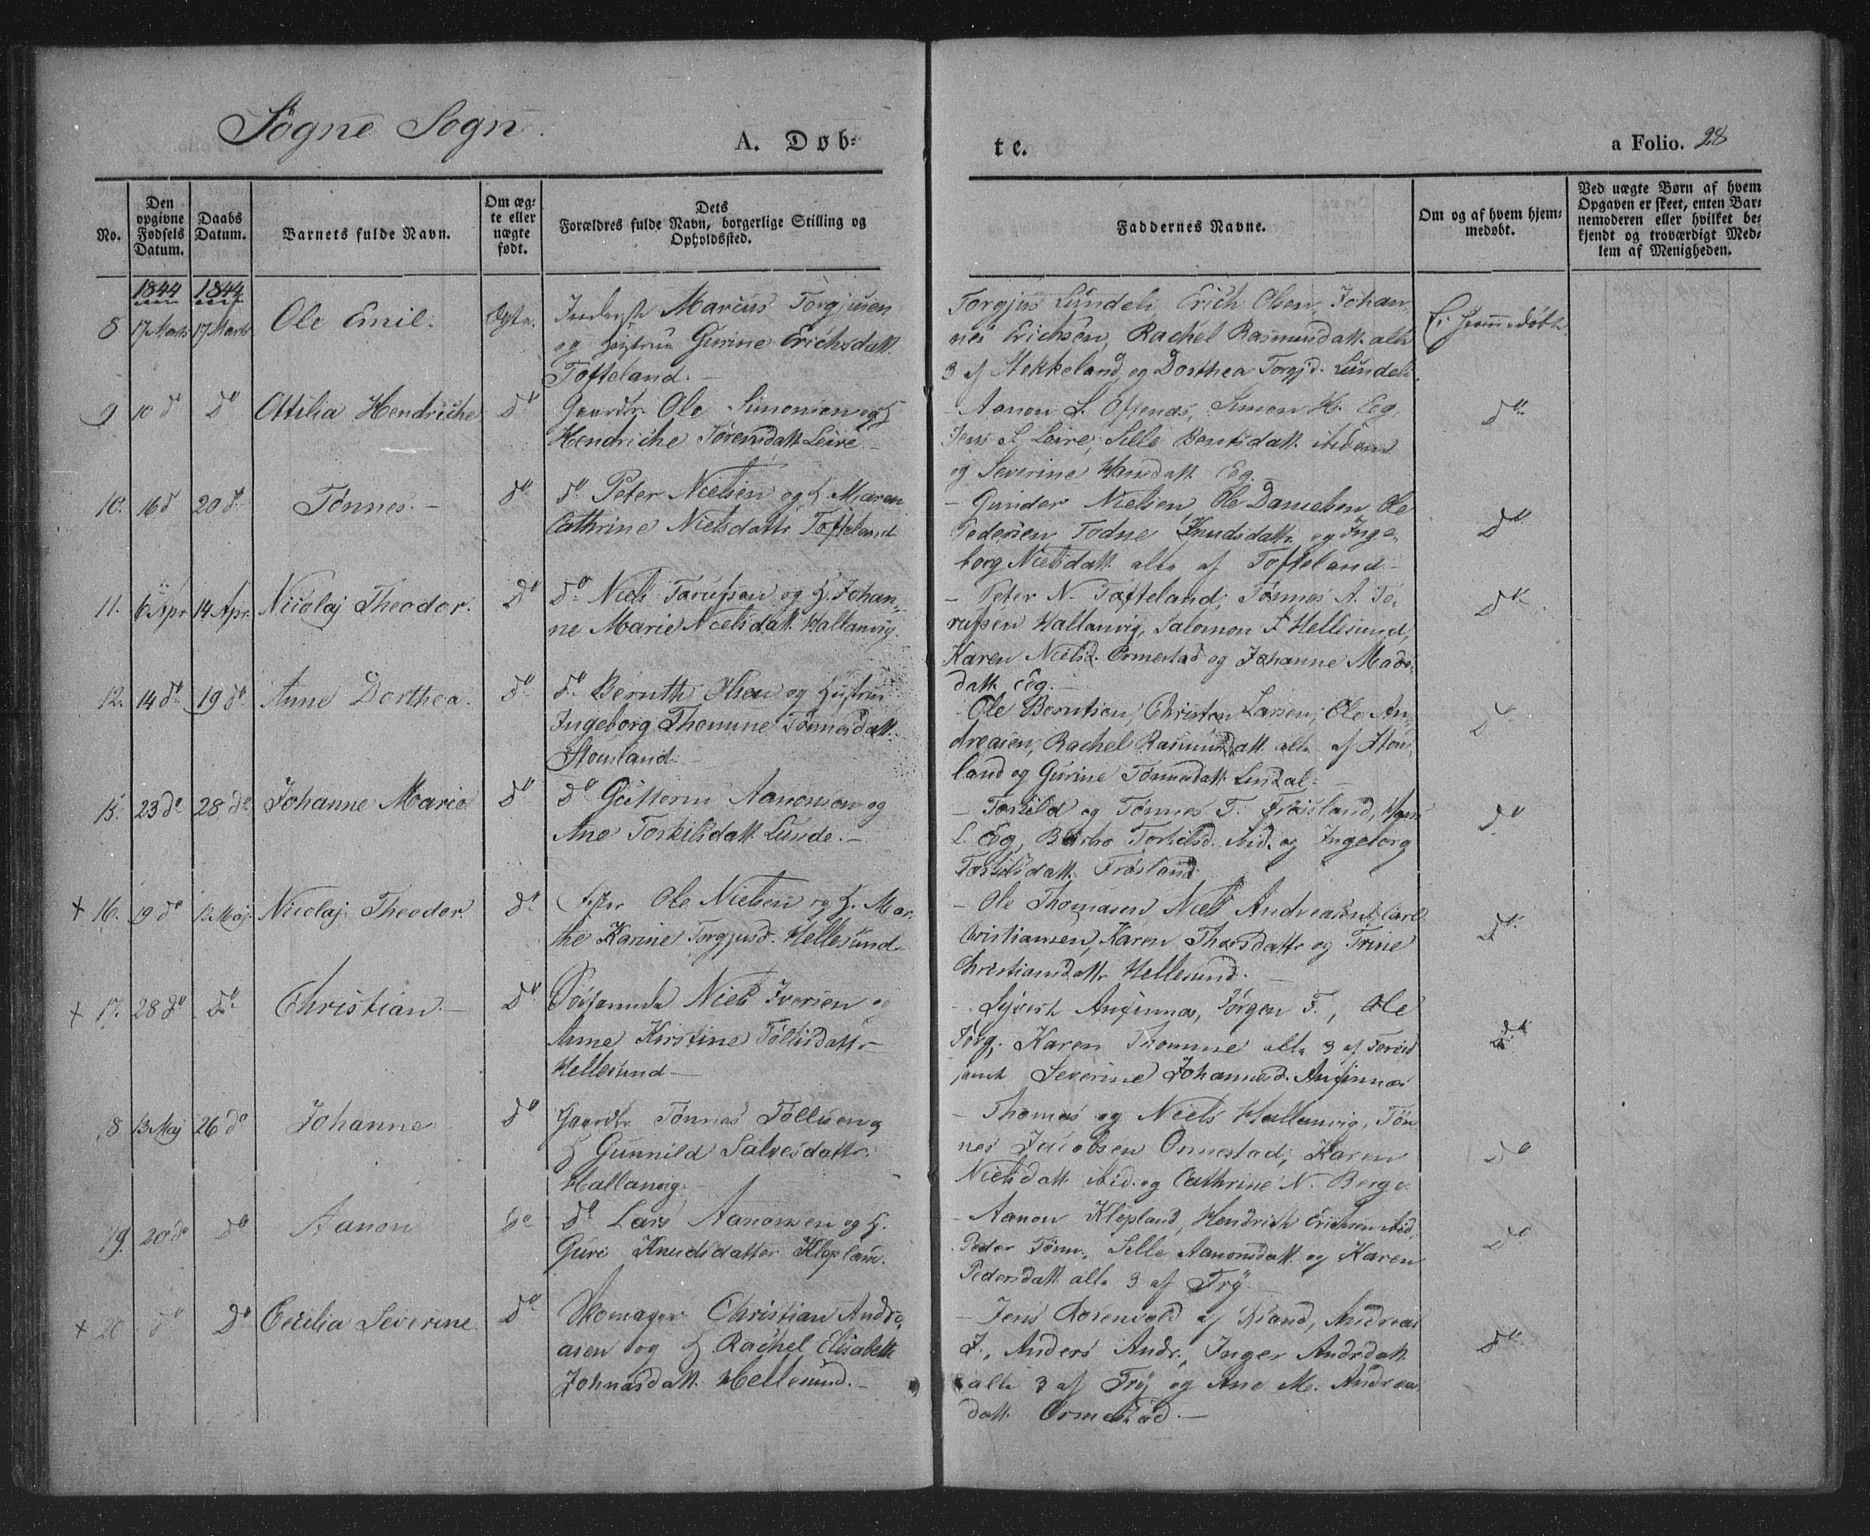 Søgne Sogn.
A. Døb-
te.
a Folio. 28
No.
Den opgivne Fødsels Datum.
Daabs Datum.
Barnets fulde Navn.
Om ægte eller uægte født.
Dets Forældres fulde Navn, borgerlige Stilling og Opholdssted.
Faddernes Navne.
Om og af hvem hjemmedøbt.
Ved uægte Børn af hvem Opgaven er skeet, enten Barnemoderen eller hvilket bekjendt og troværdigt Medlem af Menigheden.
1844 1844
8 17 Marts 17 Marts Ole Emil. Ægte. Inderst Marcus Torgjusen
og Hustrue Gurine Erichsdatt.
Tofteland.
Torgjus Lunde, Erich Olsen, Johan-
nes Erichsen, Rachel Rasmusdatt. alle
3 af Stokkeland og Dorthea Torgjd. Lunde.
Ei hjemmedøbt.
9 10 d D° Ottilia Hendriche D° Gaardbr. Ole Simonsen og H
Hendriche Sørensdatt. Leire.
- Aanon L. Simon H. Eg,
Jens S. Leire, Sille Bentsdatt. ibidem
og Severine Hansdatt. Eg.
D°
10. 16 d 20 d° Tønnes. - D° D° Peter Nielsen og H. Maren
Cathrine Nielsdatt. Tofteland
- Gunder Nielsen, Ole Danielsen, Ole
Pedersen, Todne Knudsdatt. og Inge-
borg Nielsdatt. alle af Tofteland -
D°
11. 6 Apr 14 Apr. Nicolaj Theodor. D° D° Niels og H. Johan-
ne Marie Nielsdatt. Hallanvig.
- Peter N. Tofteland, Tønnes A.
Hallanvig, Salomon T Hellesund,
Karen Nielsd. Ormestad og Johanne Mads-
datt. Eg.
D°
12. 14 d° 19 d° Anne Dorthea. D° D° Bernth Olsen og Hustrue
Ingeborg Thomine Tønnesdatt.
Stousland.
- Ole Berntsen, Christen Larsen, Ole An-
dreasen, Rachel Rasmusdatt. alle af Stous-
land og Gurine Tønnesdatt. Lindal.
D°
15. 23 d° 28 d° Johanne Marie D° D° Guttorm Aanonsen og
Ane Torkilsdatt. Lunde. -
- Torkild og Tønnes T. Frøisland,
L. Eg, Barbro Torkilsd. ibid. og Ingeborg
Torkilsdatt. Frøsland
D°
+ 16. 19 d° 12 Maj Nicolaj Theodor D° Fisker Ole Nielsen og H. Mar-
the Karine Torgjusd. Hellesund
- Ole Thomasen, Niels Andreasen, Carl
Christiansen, Karen Thorsdatt. og Trine
Christiansdatt. Hellesund. -
D°
+ 17. 28 d° D° Christian. - D° Søemand Niels Iversen og
Anne Kirstine Tollisdatt. -
Hellesund -
- Syvert Aufinnæs, Jørgen T., Ole
Jørg. Karen Thomine alle 3 af
Severine Johannesd. Aufinnæs
D°
18 13 Maj 26 d° Johanne D° Gaardbr. Tønnes Tollisen og
H Gunnild Salvesdatt.
Hallanvig. -
- Thomas og Niels Hallanvig, Tøn-
nes Jacobsen Ormestad, Karen
Nielsdatt. ibid. og Cathrine N. Berge.
D°
19. 20 d° D° Aanon D° D° Lars Aanonsen og H.
Guri Knudsdatter Klepland.
- Aanon Klepland, Hendrich Erichsen ibid,
Peder Tønn., Sille Aanonsdatt. og Karen
Pedersdatt. alle 3 af Try
D°
+ 20 D° D° Cecilia Severine D° Skomager Christian Andre-
asen og H Rachel Elisabeth
Johnasdatt. Hellesund. -
- Jens Rosenvold af Xsand, Andreas
J., Anders Andr., Inger Andrdatt.
alle 3 af Try og Ane M. Andreas-
datt. Ormestad. -
D°